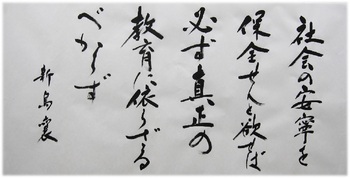 社会の安寧を
保全せんと欲せば
必ず真正の
教育に依らざる
べからず
新島襄